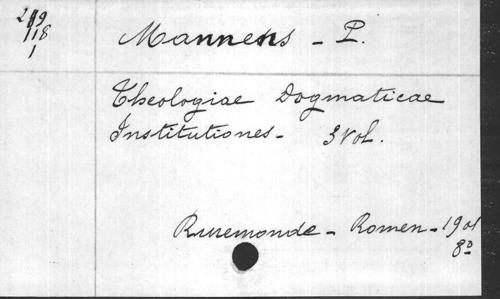 Mannens - P.
118
1
Theologiae Dogmaticae
Institutiones - 3 vol.
Ruremonde - Romen - 1901
8º